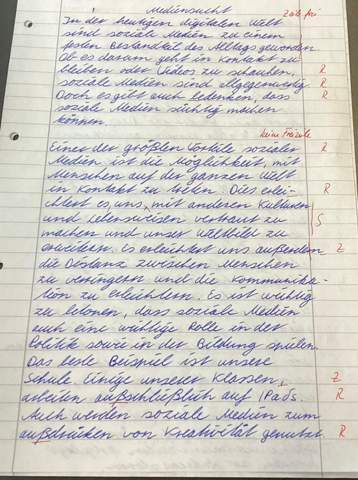 Mediensucht
In der heutigen digitalen Welt Zeile frei
sind soziale Medien zu einem
festen Bestandteil des Alltags geworden
Ob es darum geht in Kontakt zu
bleiben oder Videos zu schauben. R
soziale Medien sind allgegenwertig R
Doch es gibt auch bedenken, dass R
soziale Medien süchtig machen
können.
keine Freizeile
Einer der größten Vorteile sozialer R
Medien ist die Möglichkeit, mit
Menschen auf der ganzen Welt
in Kontakt zu treten. Dies erlei- R
chtert es uns, mit anderen Kulturen
und Lebensweisen vertraut zu S
machen und unser Weltbild zu
erweitern. es erleichtert uns außerdem Z
die Distanz zwischen Menschen
zu verringern und die Kommunika-
tion zu erleichtern. Es ist wichtig
zu betonen, dass soziale Medien
auch eine wichtige Rolle in der
Politik sowie in der Bildung spielen.
Das beste Beispiel ist unsere
Schule. Einige unserer Klassen, Z
arbeiten außschließlich auf iPads. R
Auch werden soziale Medien zum
außdrücken von Kreativität genutzt. R